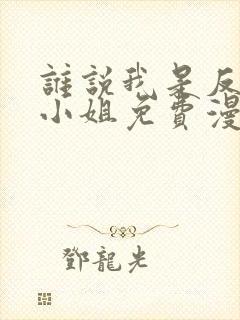 誰說我是反
小姐免費漫
鄧龍光